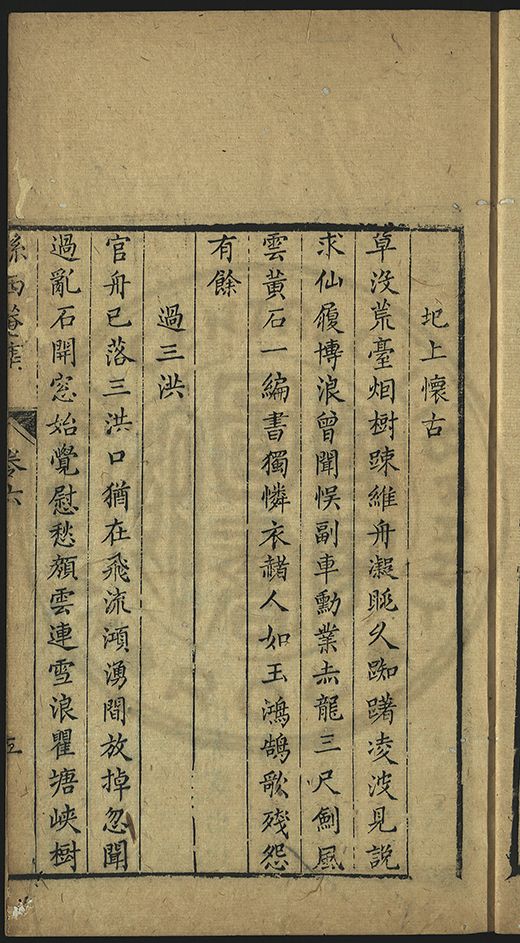 圯上懷古
草没荒臺烟樹踈維舟凝眺久踟躇凌波見説
求仙履博浪曾聞悮副車勳業赤龍三尺劍風
雲黃石一編書獨憐衣赭人如玉鴻鵠歌殘怨
有餘
過三洪
官舟已落三洪口猶在飛流澒湧間放掉忽聞
過亂石開窓始覺慰愁顏雲連雪浪瞿塘峽樹
孫西菴集
卷六
五